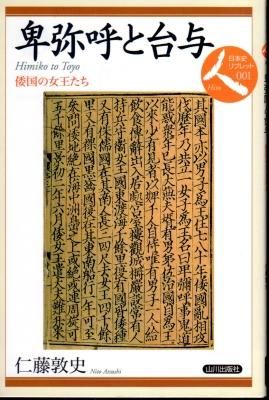 卑弥呼と台与
Himiko to Toyo
倭国の女王たち
日本史
リブレット
人
001
Hito
其國本亦以男子為王住七八十年倭國亂相攻
伐歷年乃共立一女子為王名曰卑彌呼事鬼道
能惑衆年已長大無夫壻有男弟佐治國自為王
以來少有見者以婢千人自侍唯有男子一人給
飲食傳辭出入居處宮室樓觀城柵嚴設常有人
持兵守衛女王國東渡海千餘里復有國皆倭種
又有侏儒國在其南人長三四尺去女王四千餘
里又有裸國黑齒國復在其東南船行一年可至
參問倭地絕在海中洲島之上或絕或連周旋可
五千餘里景初二年六月倭女王遣大夫難升米
仁藤敦史
Nito Atsushi
山川出版社